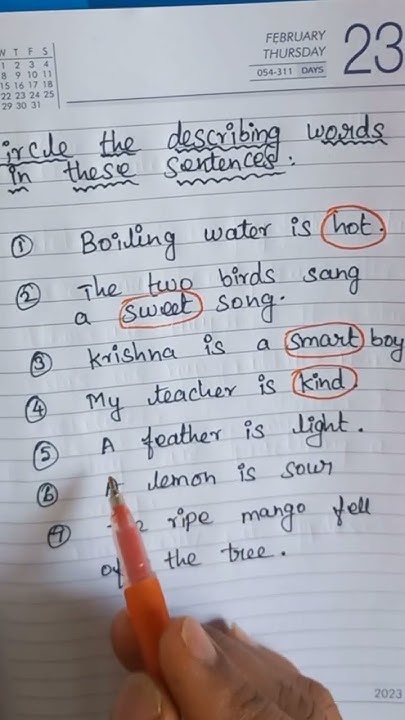 W T F S
1 2 3 4
8 9 10 11
15 16 17 18
22 23 24 25
29 30 31
FEBRUARY
THURSDAY
054-311 DAYS
23
ircle the describing words
in these sentences.
① Boiling water is hot.
② The two birds sang
a sweet song.
③ Krishna is a smart boy
④ My teacher is kind
⑤ A feather is light.
⑥ lemon is sour
⑦ ripe mango fell
the tree.
2023